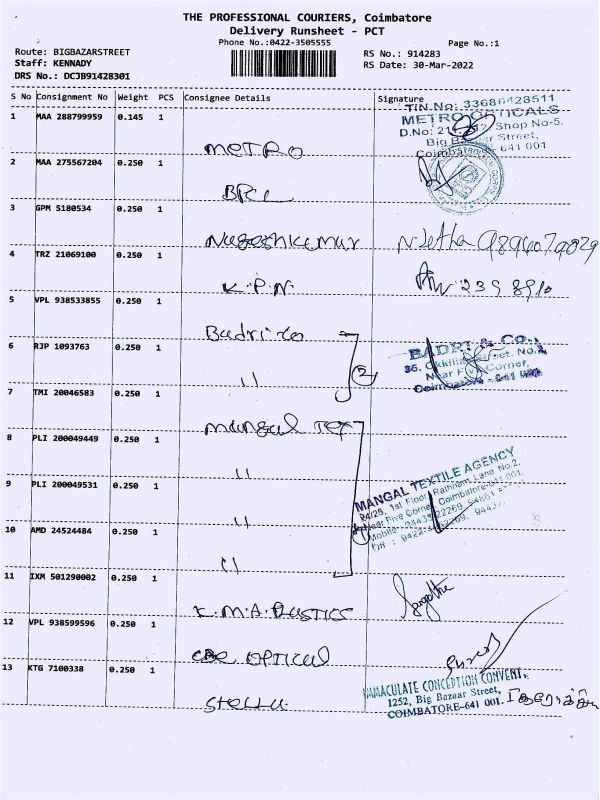 THE PROFESSIONAL COURIERS, Coimbatore
Delivery Runsheet - PCT
Phone No.:0422-3505555
Page No.:1
Route: BIGBAZARSTREET
Staff: KENNADY
DRS No.: DCJB91428301
RS No.: 914283
RS Date: 30-Mar-2022
S No Consignment No Weight PCS Consignee Details Signature
1 MAA 288799959 0.145 1 METRO
TIN No: 33686428511
METRO OPTICALS
Shop No-5,
Big Bazaar Street,
Coimbatore - 641 001
2 MAA 275567204 0.250 1 BPCL
3 GPM 5180534 0.250 1 Nageshkumar
4 TRZ 21069100 0.250 1 K.P.N 2398910
5 VPL 938533855 0.250 1 Badri co
6 RJP 1093763 0.250 1 " 2
BADRI & CO.,
Near Five Corner,
Coimbatore - 641 001
7 TMI 20046583 0.250 1 Mangal Tex
8 PLI 200049449 0.250 1 "
9 PLI 200049531 0.250 1 "
MANGAL TEXTILE AGENCY
84/25, 1st Floor, Rathinam Lane No.2,
Near Five Corner, Coimbatore-641 001.
10 AMD 24524484 0.250 1 "
11 IXM 501290002 0.250 1 K.M.A. PLASTICS
12 VPL 938599596 0.250 1 OPTICAL
13 KTG 7100338 0.250 1 Stella
IMMACULATE CONCEPTION CONVENT,
1252, Big Bazaar Street,
COIMBATORE-641 001.